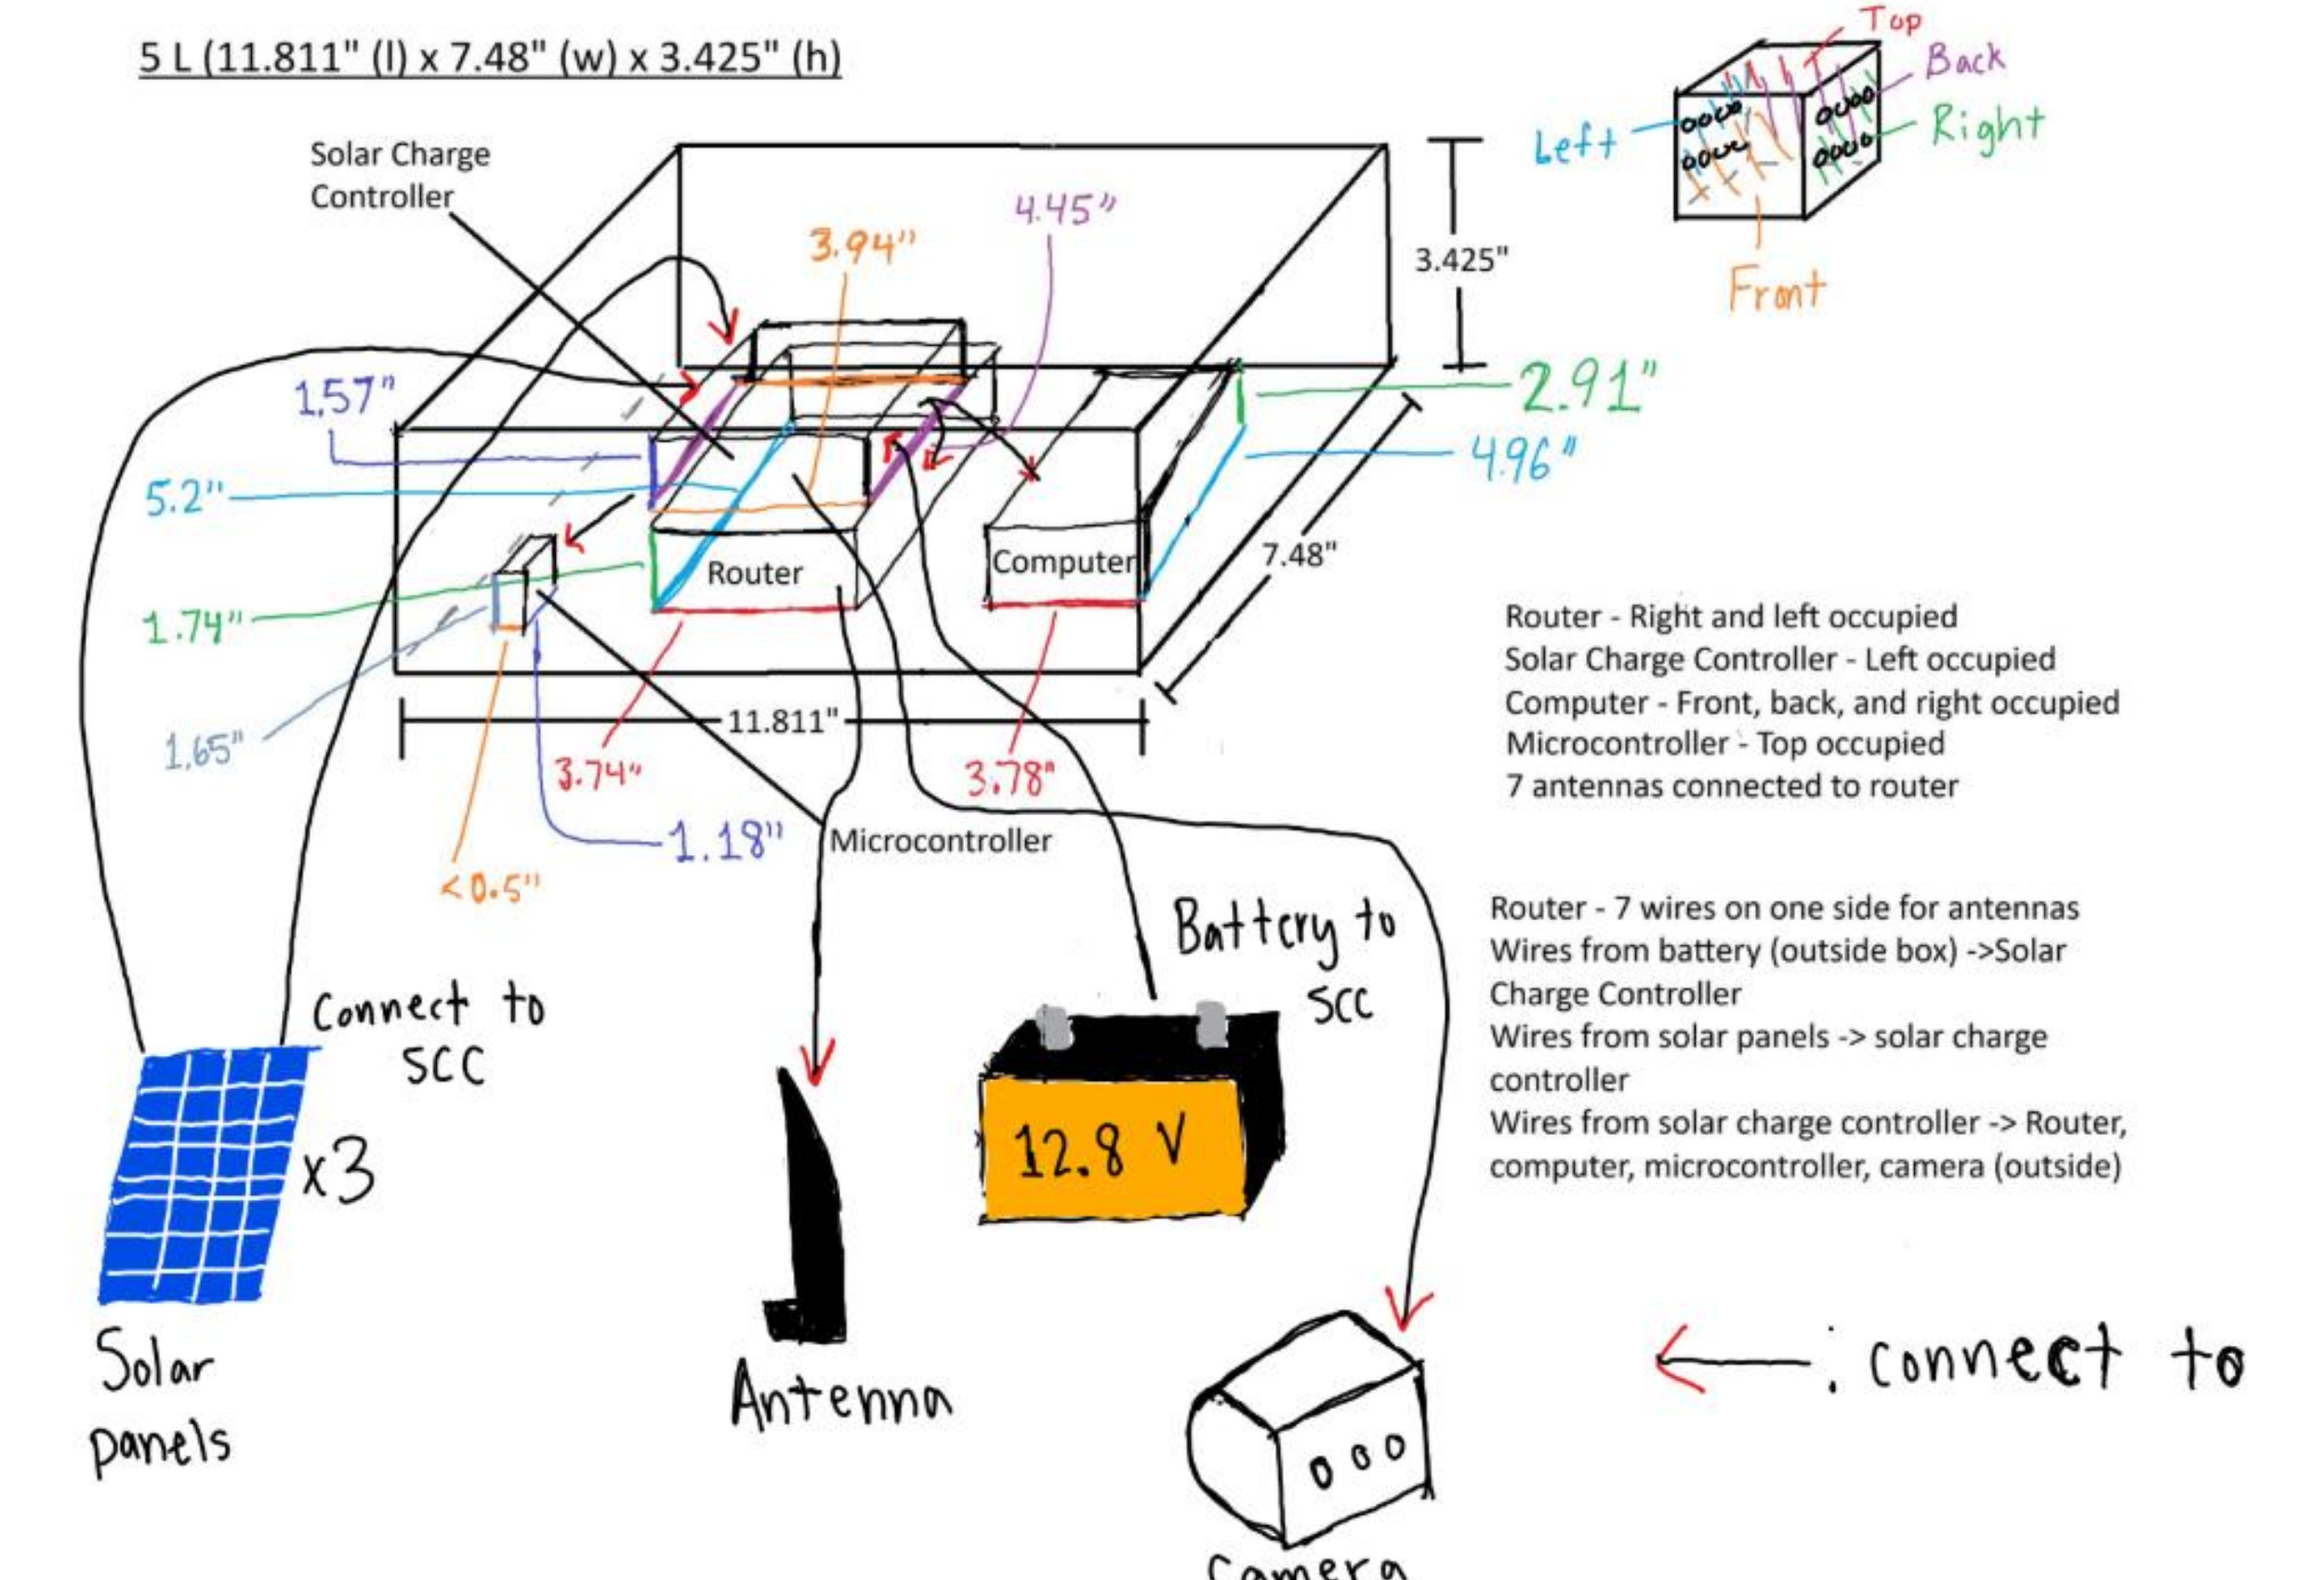 5 L (11.811" (l) x 7.48" (w) x 3.425" (h)
Top
Back
Left
Right
Front
Solar Charge
Controller
4.45"
3.94"
3.425"
1.57"
2.91"
5.2"
4.96"
7.48"
Router
Computer
1.74"
1.65"
11.811"
3.74"
3.78"
1.18"
Microcontroller
<0.5"
Router - Right and left occupied
Solar Charge Controller - Left occupied
Computer - Front, back, and right occupied
Microcontroller - Top occupied
7 antennas connected to router
Router - 7 wires on one side for antennas
Wires from battery (outside box) ->Solar
Charge Controller
Wires from solar panels -> solar charge
controller
Wires from solar charge controller -> Router,
computer, microcontroller, camera (outside)
Connect to
SCC
Battery to
SCC
x3
12.8 V
Solar
panels
Antenna
Camera
: connect to